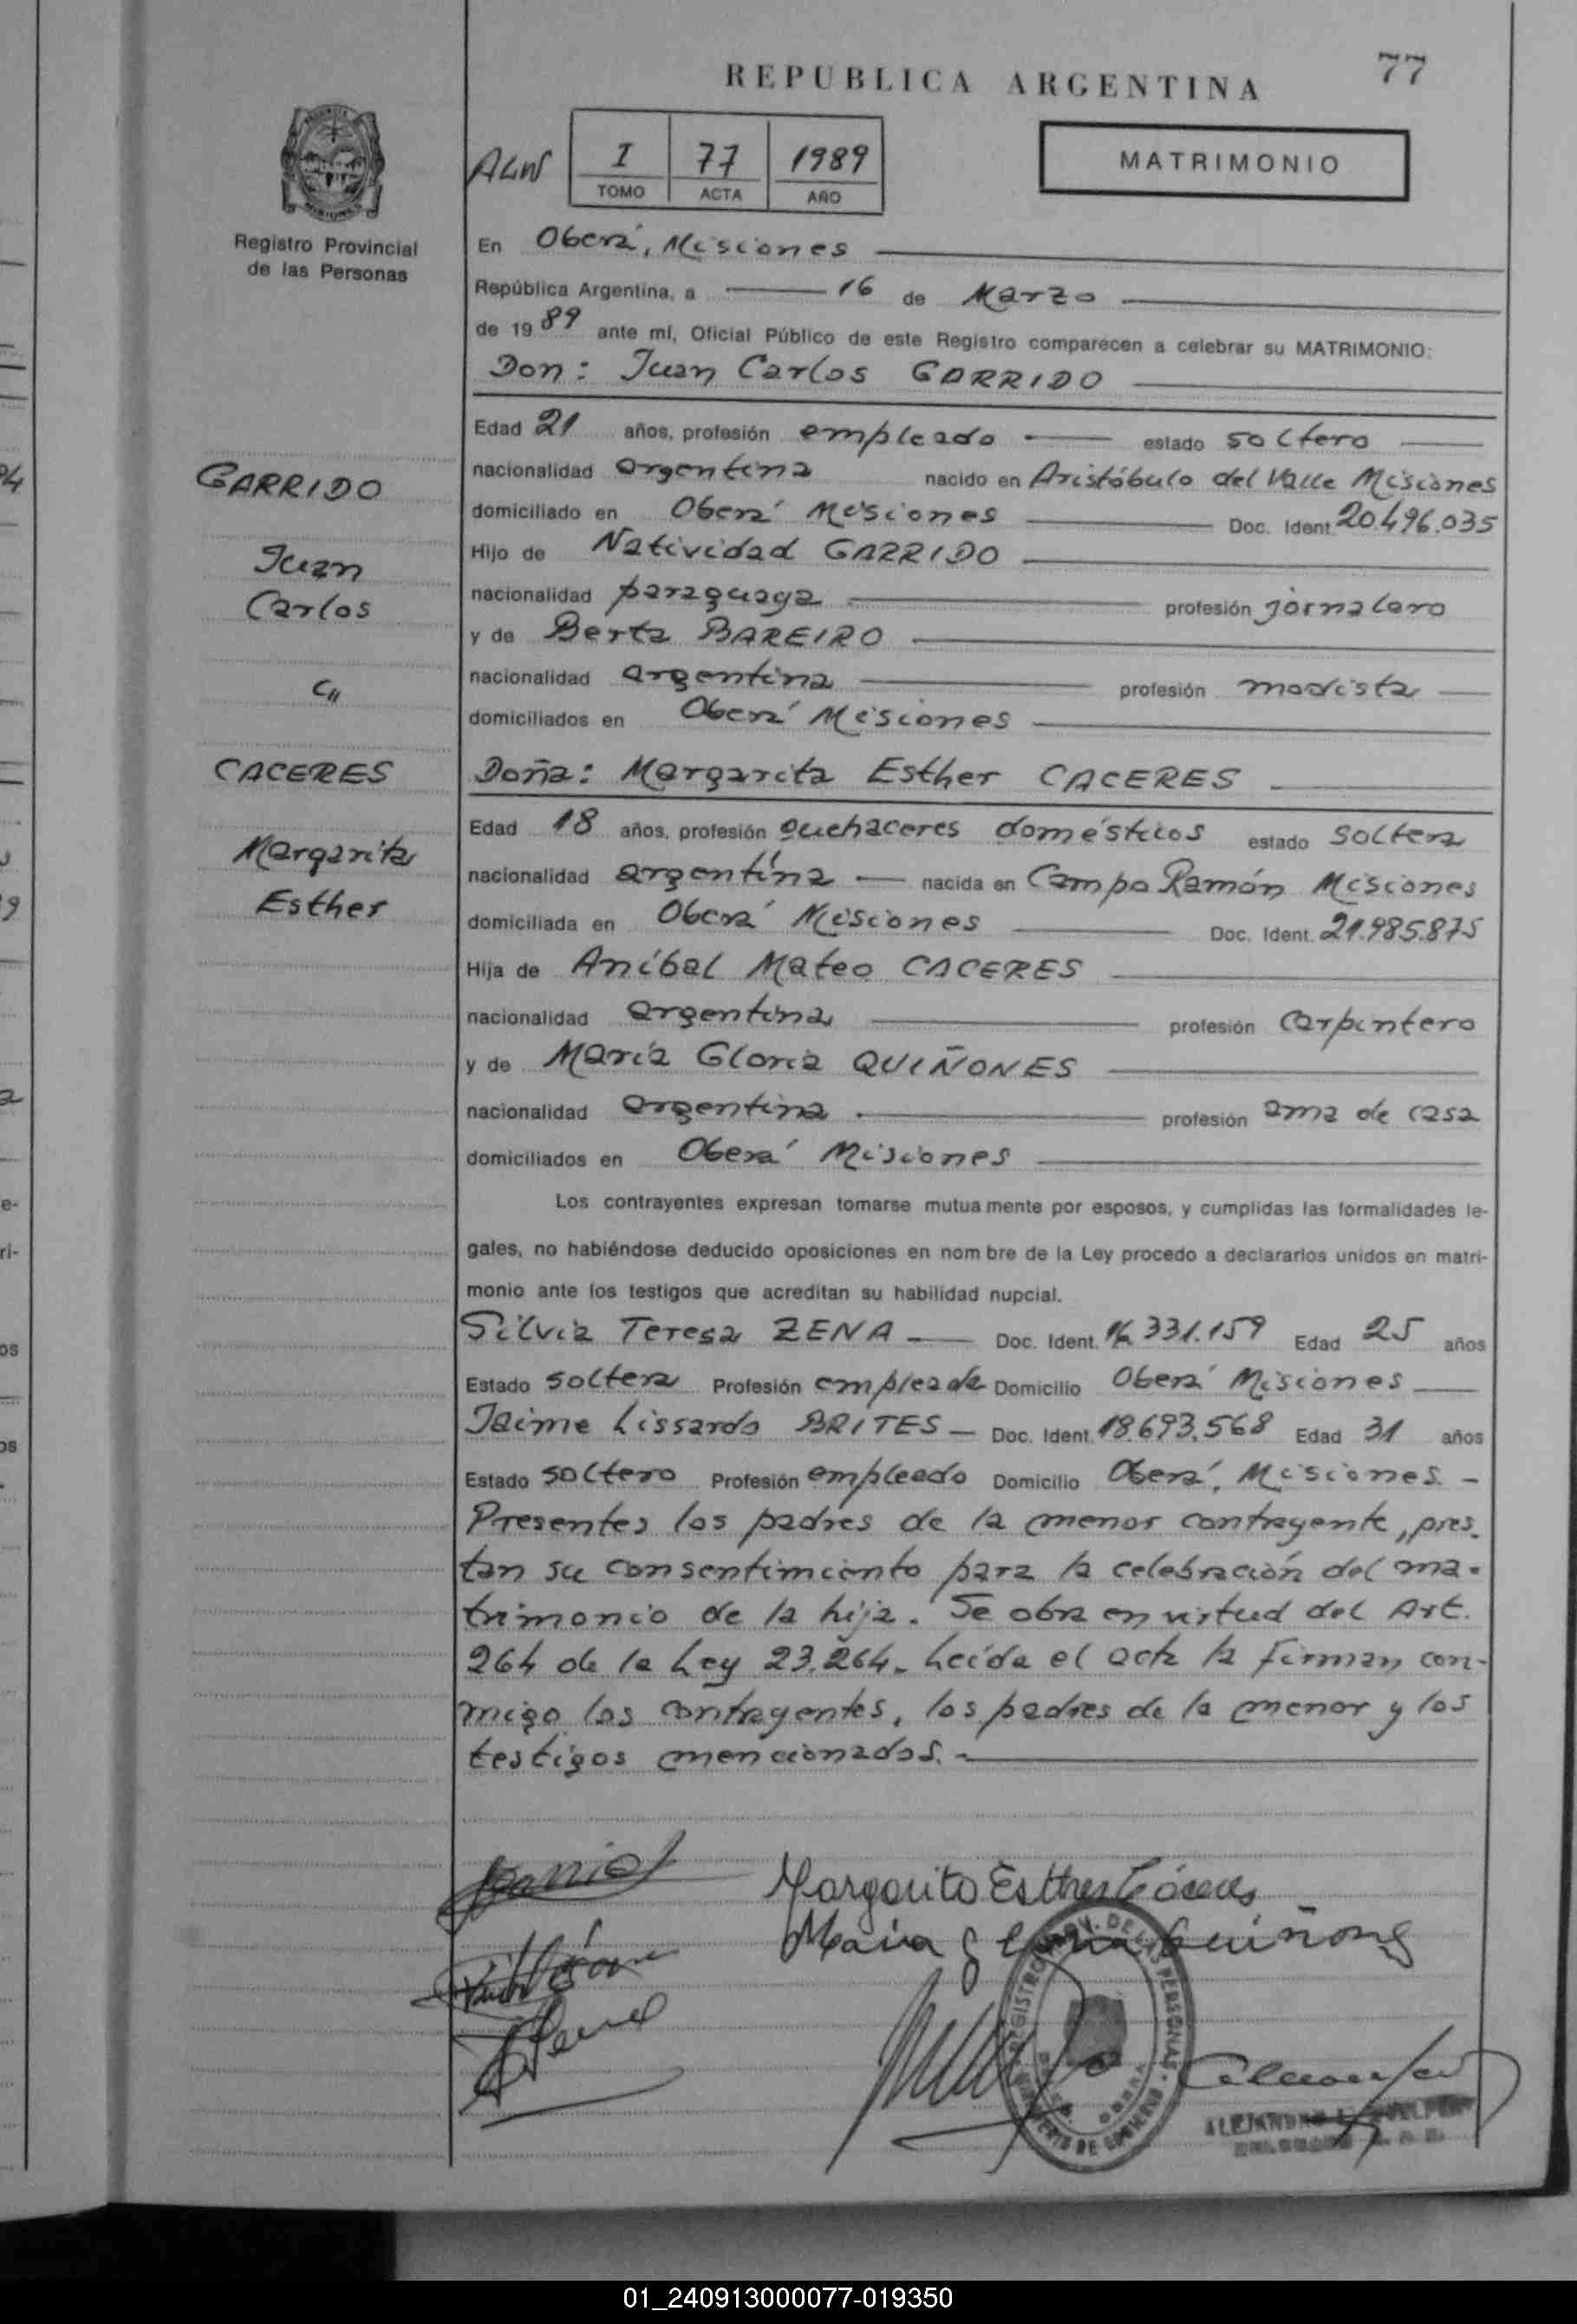 77
REPUBLICA ARGENTINA
MATRIMONIO
I 77 1989
TOMO ACTA AÑO
Registro Provincial
de las Personas
En Oberá, Misiones
República Argentina, a 16 de Marzo
de 1989 ante mí, Oficial Público de este Registro comparecen a celebrar su MATRIMONIO:
Don: Juan Carlos GARRIDO
Edad 21 años, profesión empleado estado soltero
nacionalidad argentina nacido en Aristóbulo del Valle Misiones
domiciliado en Oberá Misiones Doc. Ident. 20.496.035
Hijo de Natividad GARRIDO
nacionalidad paraguaya profesión jornalero
y de Berta BAREIRO
nacionalidad argentina profesión modista
domiciliados en Oberá Misiones
GARRIDO
Juan
Carlos
c//
CACERES
Margarita
Esther
Doña: Margarita Esther CACERES
Edad 18 años, profesión quehaceres domésticos estado soltera
nacionalidad argentina nacida en Campo Ramón Misiones
domiciliada en Oberá Misiones Doc. Ident. 21.985.875
Hija de Aníbal Mateo CACERES
nacionalidad argentina profesión carpintero
y de María Gloria QUIÑONES
nacionalidad argentina profesión ama de casa
domiciliados en Oberá Misiones
Los contrayentes expresan tomarse mutua mente por esposos, y cumplidas las formalidades le-
gales, no habiéndose deducido oposiciones en nom bre de la Ley procedo a declararlos unidos en matri-
monio ante los testigos que acreditan su habilidad nupcial.
Silvia Teresa ZENA Doc. Ident. 16.331.159 Edad 25 años
Estado soltera Profesión empleada Domicilio Oberá Misiones
Jaime Lissardo BRITES Doc. Ident. 18.693.568 Edad 31 años
Estado soltero Profesión empleado Domicilio Oberá, Misiones. -
Presentes los padres de la menor contrayente, pres-
tan su consentimiento para la celebración del ma-
trimonio de la hija. Se obra en virtud del Art.
264 de la Ley 23.264. Leída el acta la firman con-
migo los contrayentes, los padres de la menor y los
testigos mencionados. -
Margarita Esther Cáceres
María Gloria Quiñones
REGISTRO PROV. DE LAS PERSONAS
MINISTERIO DE GOBIERNO
01_240913000077-019350